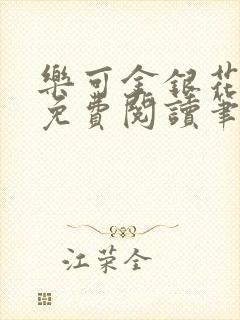 樂可金銀花
免費閱讀筆
江荣全